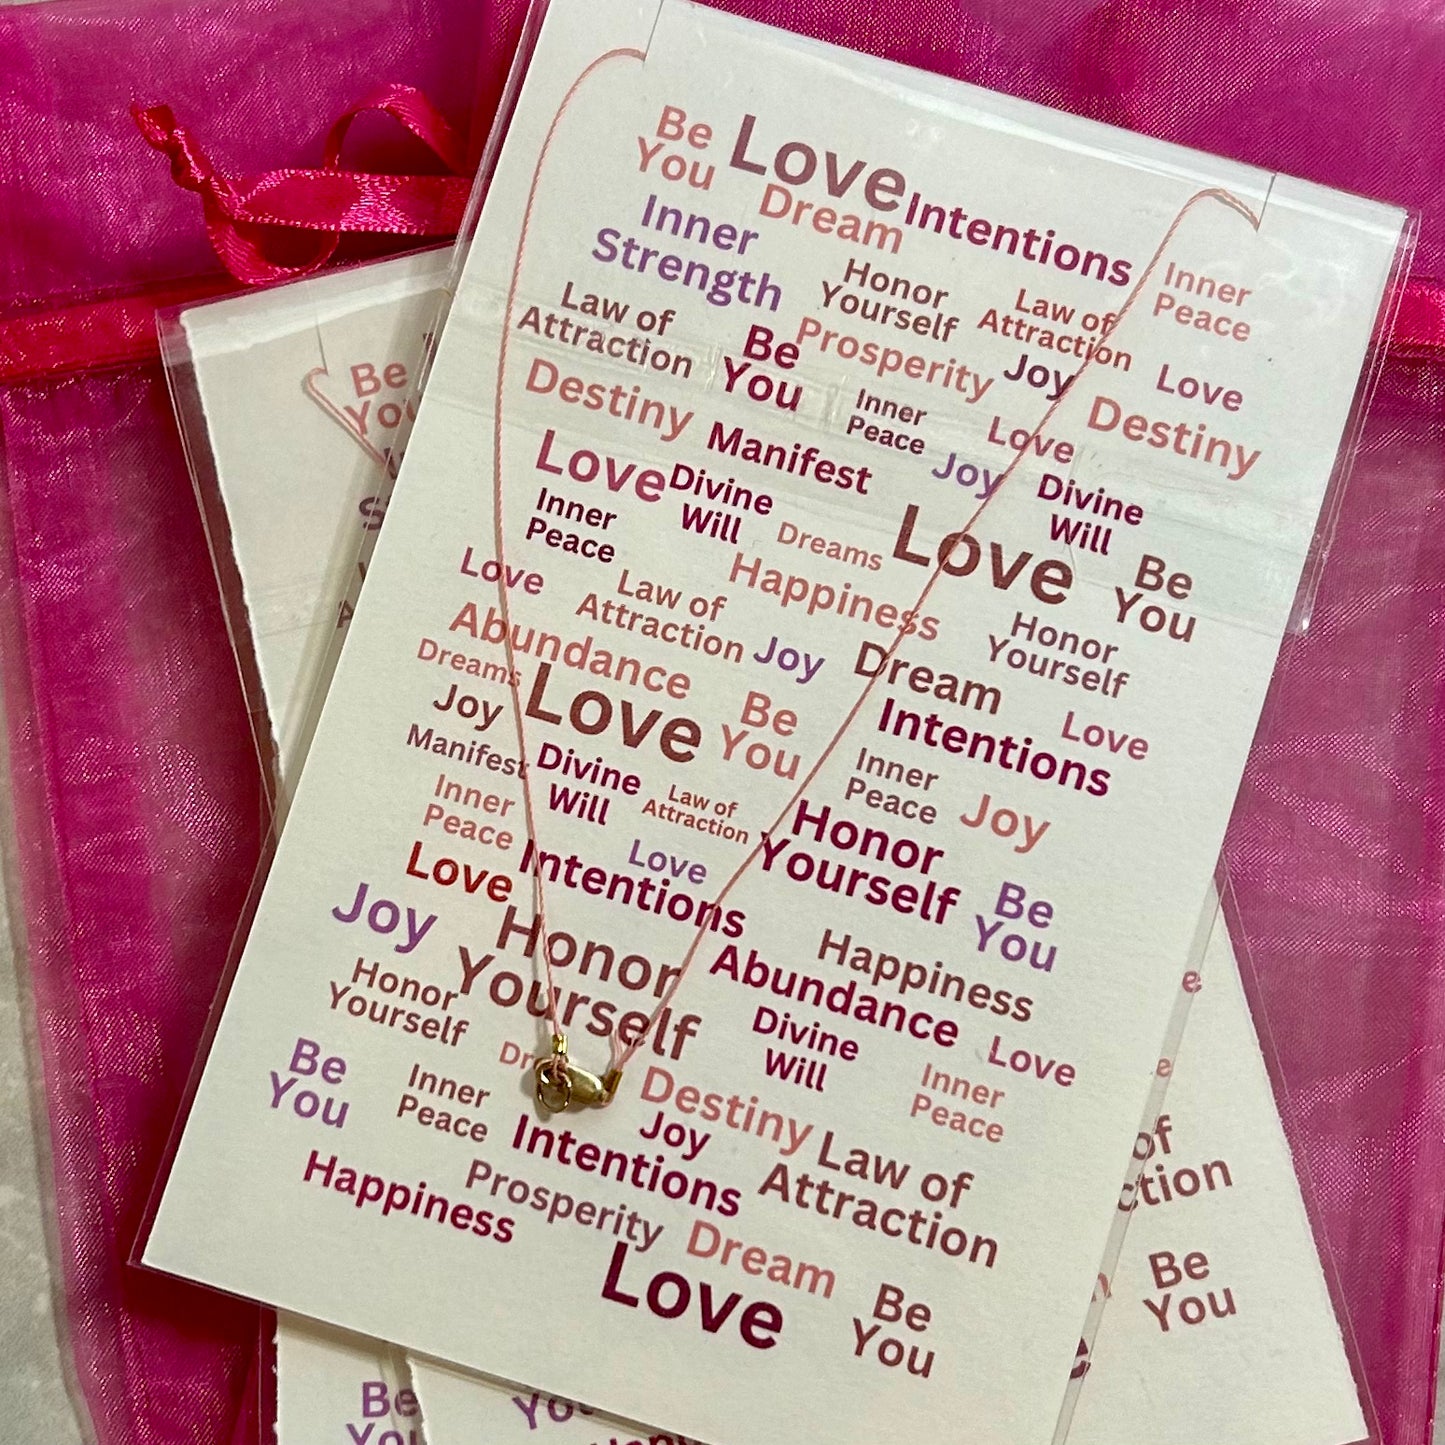 Be
You
Love
Dream
Intentions
Inner
Strength
Honor
Yourself
Law of
Attraction
Inner
Peace
Law of
Attraction
Be
You
Prosperity
Joy
Love
Destiny
Manifest
Inner
Peace
Love
Destiny
Love
Divine
Will
Joy
Divine
Will
Inner
Peace
Dreams
Love
Be
You
Love
Law of
Attraction
Happiness
Honor
Yourself
Abundance
Joy
Dream
Dreams
Love
Be
You
Intentions
Love
Joy
Manifest
Divine
Will
Law of
Attraction
Inner
Peace
Joy
Inner
Peace
Love
Honor
Yourself
Love
Intentions
Be
You
Joy
Honor
Yourself
Abundance
Happiness
Honor
Yourself
Divine
Will
Love
Be
You
Inner
Peace
Destiny
Inner
Peace
Intentions
Joy
Law of
Attraction
Happiness
Prosperity
Dream
Love
Be
You
Be
of
Be
You
Be